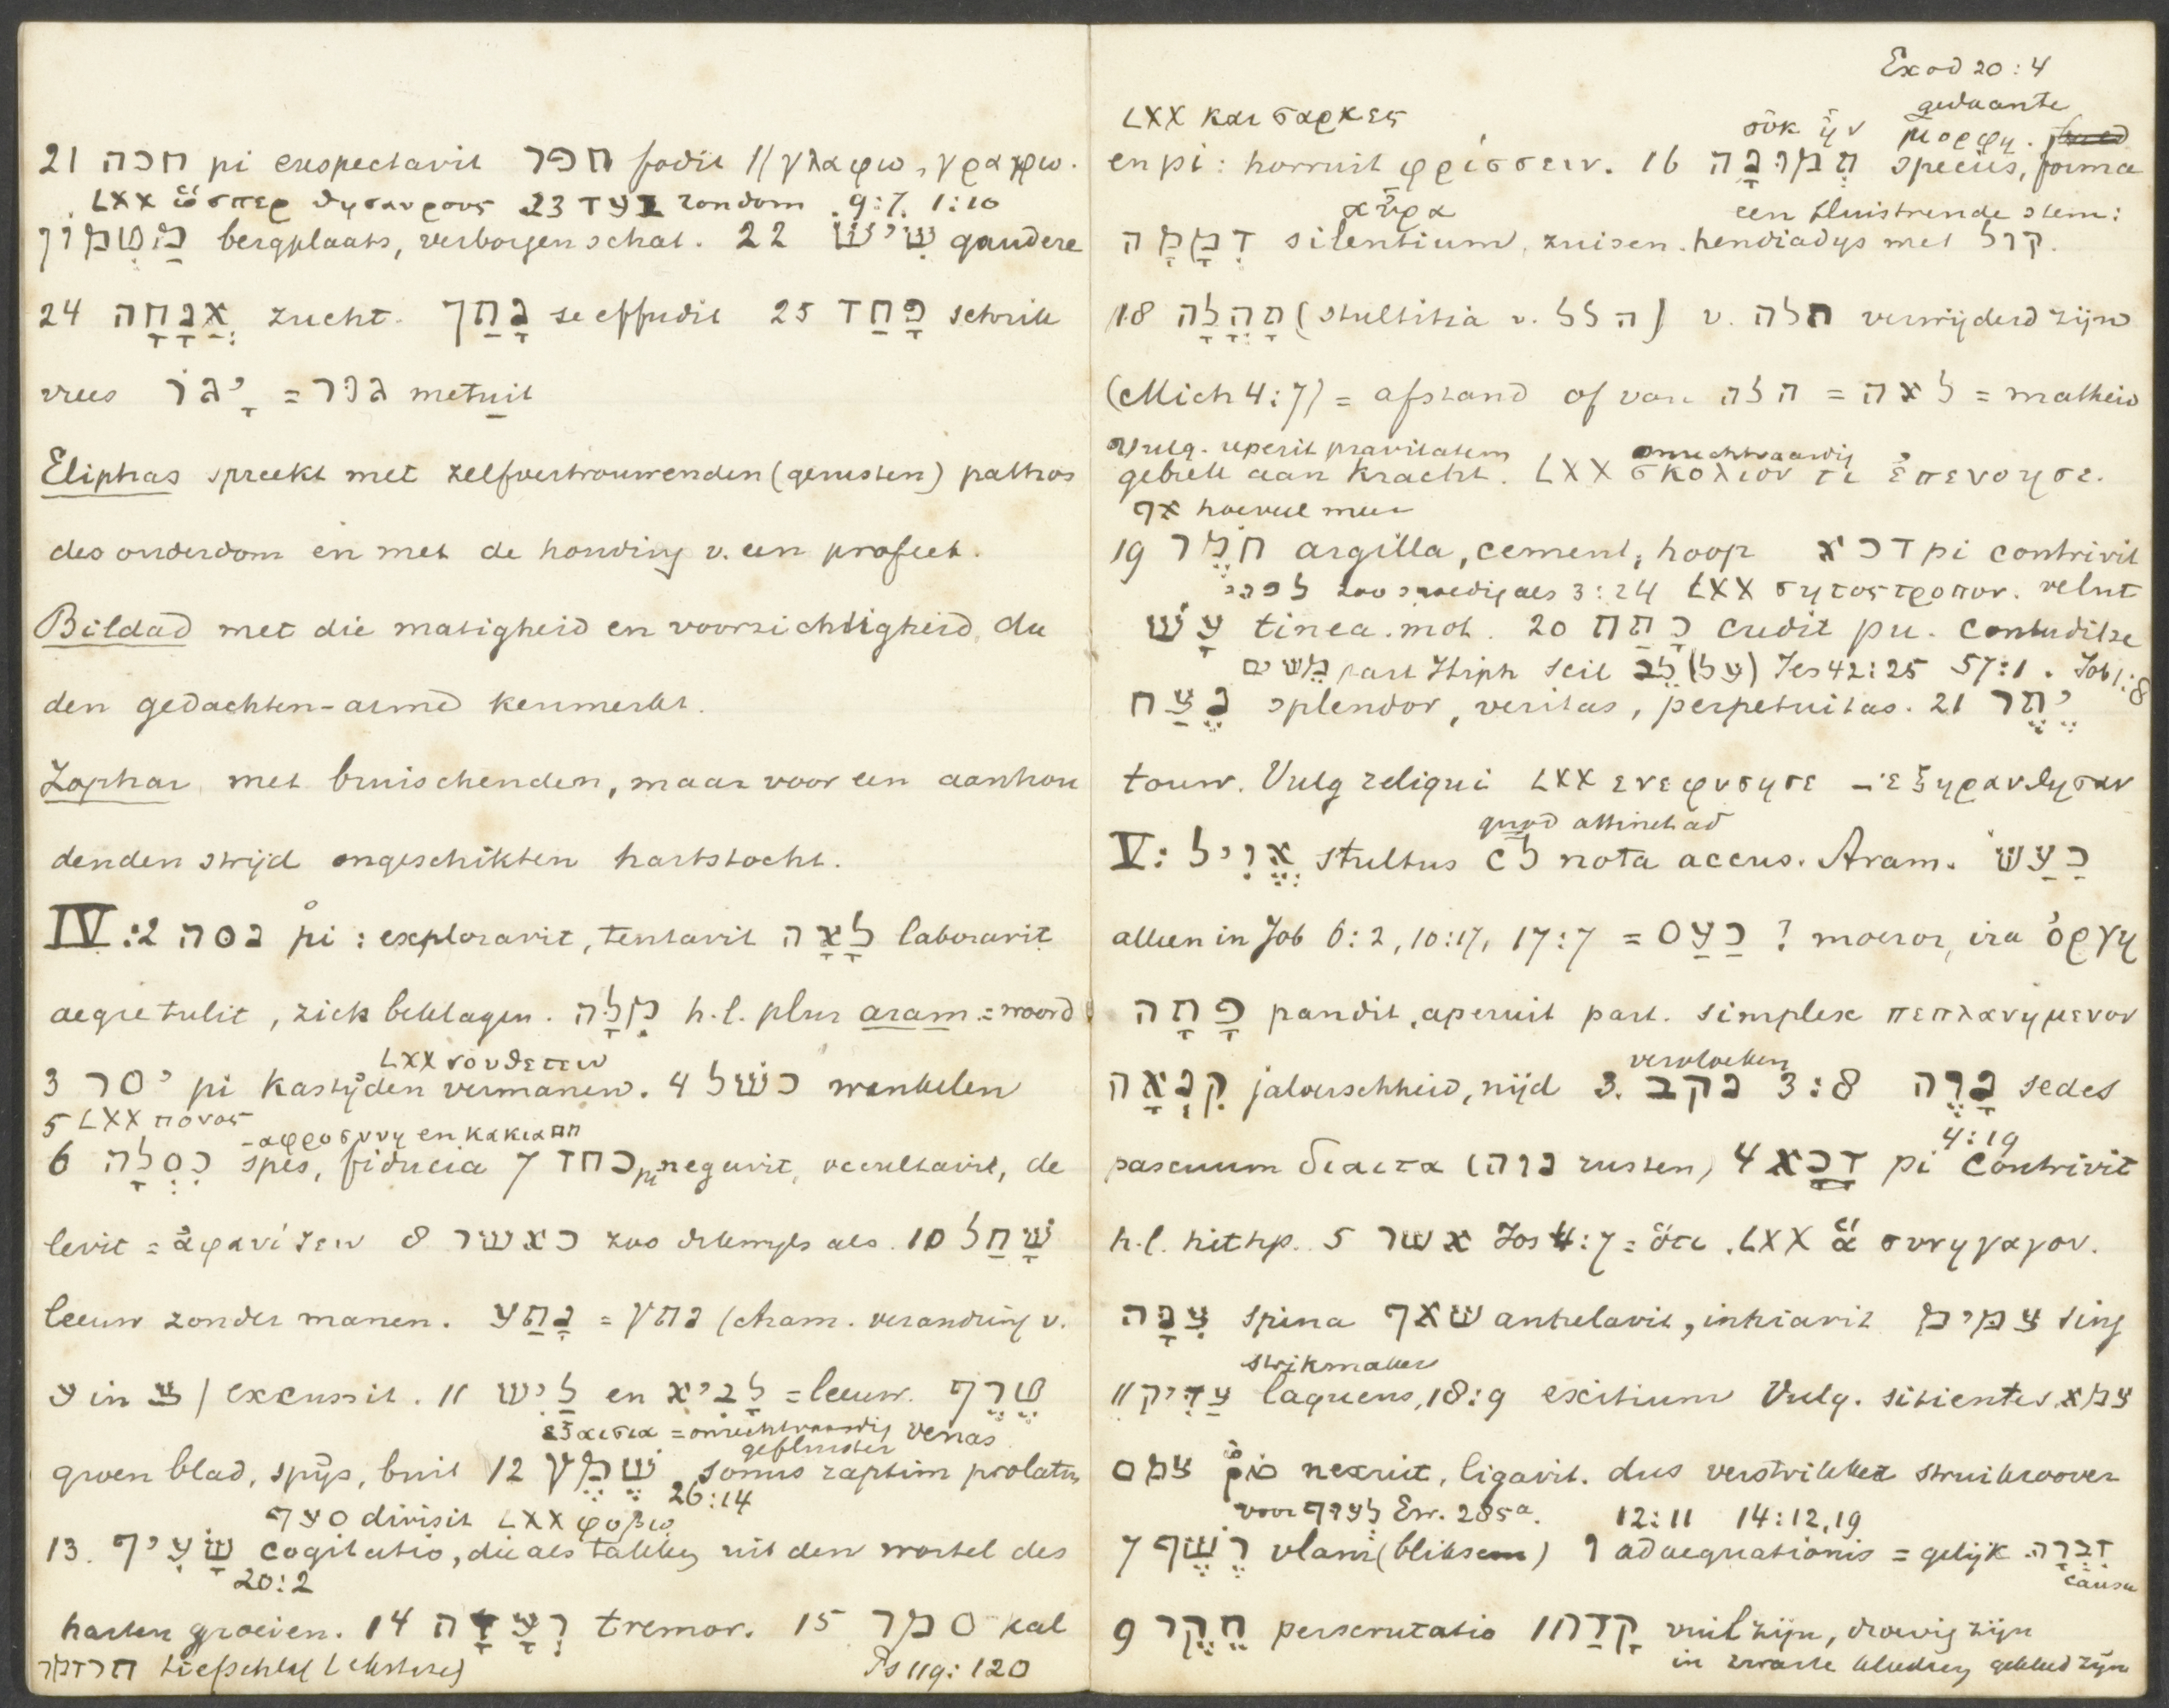 21 חכה pi exspectavit חפר fodit // γλαφω, γραφω.
LXX ὥσπερ θησαυρους 23 בעד rondom 9:7. 1:10
מַטְמוֹן bergplaats, verborgen schat. 22 שִׂישׂ gaudere
24 אֲנָחָה zucht. נָתַךְ se effudit 25 פָּחַד schrik
vrees יָגוֹר = גור metuit
Eliphas spreekt met zelfvertrouwenden (gerusten) pathos
des ouderdom en met de houding v. een profeet.
Bildad met die matigheid en voorzichtigheid, die
den gedachten-armed kenmerkt.
Zophar met bruischenden, maar voor een aanhou
denden strijd ongeschikten hartstocht.
IV:2 נסה pi: exploravit, tentavit לָאָה laboravit
aegre tulit, zich beklagen. מִלָּה h.l. plur aram = woord
LXX νουθετειν
3 יסר pi kastijden vermanen. 4 כשׁל wankelen
5 LXX πονος
-αφροσυνη en κακια
6 כִּסְלָה spes, fiducia 7 כחד pi negavit, occultavit, de
levit = ἀφανίζειν 8 כאשר zoo dikwijls als. 10 שַׁחַל
leeuw zonder manen. נָתַע = נתץ (Aram. verandring v.
ע in צ) excussit. 11 לַיִשׁ en לָבִיא = leeuw. טֶרֶף
εξαισια = onrechtvaardig venas
gefluister
groen blad, spijs, buit 12 שֶׁמֶץ sonus raptim prolatus
26:14
סעף divisit LXX φοβω
13. שְׂעִיף cogitatio, die als takken uit den wortel des
20:2
harten groeien. 14 רְעָדָה tremor. 15 סמר kal
תרדמה diepe slaap Ps 119:120
Exod 20:4
gedaante
LXX και σαρκες οὐκ ἦν μορφη.
en pi: horruit φρίσσειν. 16 תְּמוּנָה species, forma
αὔρα een fluistrende stem:
דְּמָמָה silentium, zuizen. hendiadys met קול.
18 תָּהֳלָה (stultitia v. הלל) v. תלה verwijderd zijn
(Mich 4:7) = afstand of van הלה = לאה = matheid
Vulg. reperit pravitatem onrechtvaardig
gebrek aan kracht. LXX σκολιον τι ἐπενοησε.
אף hoeveel meer
19 חֹמֶר argilla, cement, hoop דכא pi contrivit
לפני zoo spoedig als 3:24 LXX σητος τροπον. velut
עָשׁ tinea. mot. 20 כָּתַת cudit pu. contudit se
מֵשִׂים part Hiph scil לֵב (על) Jes 42:25 57:1. Job 1:8
נֶצַח splendor, veritas, perpetuitas. 21 יֶתֶר
touw. Vulg reliqui LXX ενεφυσησε – εξηρανθησαν
quod attinet ad
V: אֱוִיל stultus לְ nota accus. Aram. כַּעַשׂ
alleen in Job 6:2, 10:17, 17:7 = כַּעַס ? moeror, ira ὀργη
פָּתָה pandit, aperuit part. simplex πεπλανημενον
vervloeken
קִנְאָה jaloerschheid, nijd 3. נקב 3:8 נָוֶה sedes
4:19
pascuum διαιτα (נוה rusten) 4 דכא pi contrivit
h.l. hithp. 5 אשר Jos 4:7 = ὅτι. LXX ἅ συνηγαγον.
צִנָּה spina שאף anhelavit, inhiavit צמים sing
strikmaker
צַדִּיק // laqueus, 18:9 exitium Vulg. sitientes צמא
צמם nexuit, ligavit. dus verstrikker struikroover
voor לעוף Ew. 285a. 12:11 14:12,19
7 רֶשֶׁף vlam (bliksem) ו adaequationis = gelijk דִּבְרָה
causa
9 חֵקֶר perscrutatio 11 קָדַר vuil zijn, droevig zijn
in zwarte kleeding gekleed zijn